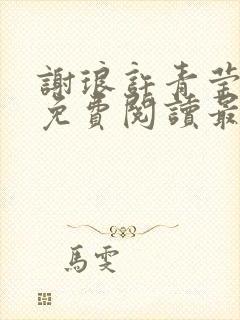 謝琅許青莹
免費閱讀最
馬雯